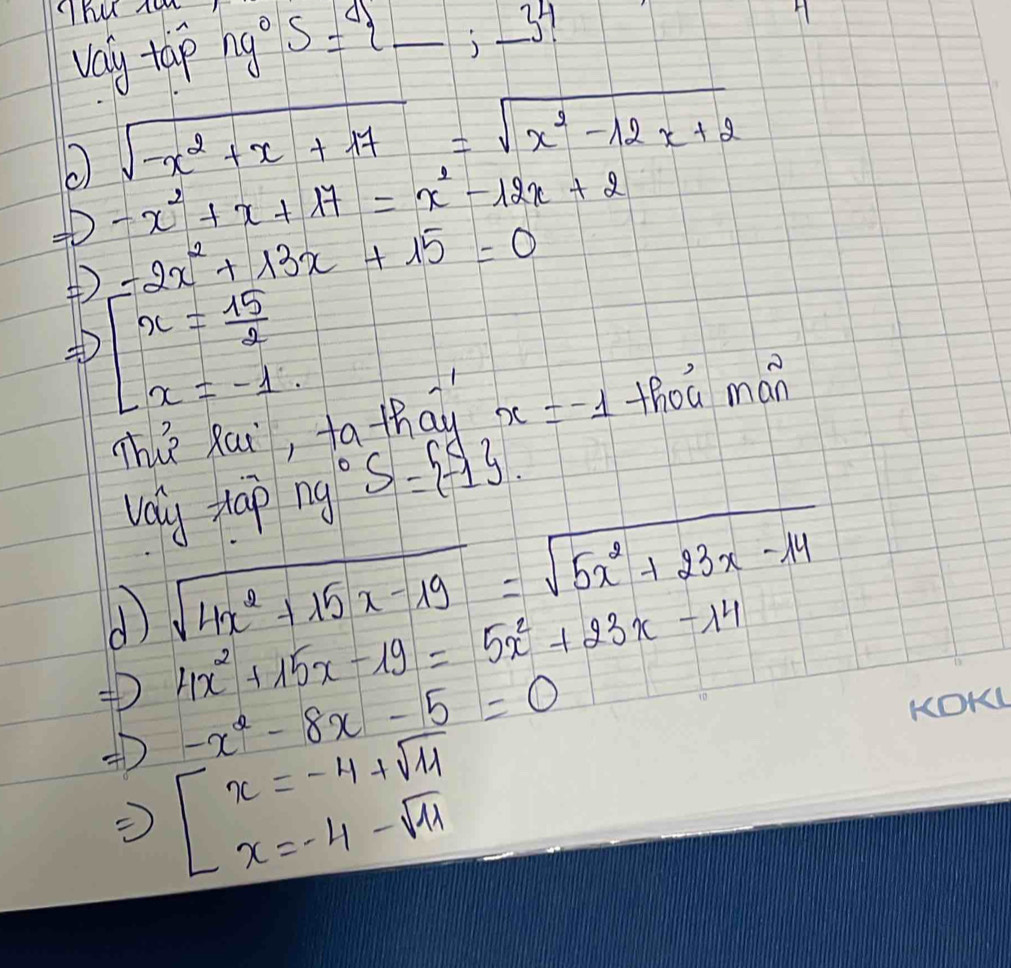 Thử lại
Vậy tập ngº S = { __ ; __ }
c) √(-x² + x + 17) = √(x² - 12x + 2)
=> -x² + x + 17 = x² - 12x + 2
=> -2x² + 13x + 15 = 0
=> [ x = 15/2
x = -1.
Thử lại, ta thấy x = -1 thoả mãn
Vậy tập ngº S = {-1}.
d) √(4x² + 15x - 19) = √(5x² + 23x - 14)
=> 4x² + 15x - 19 = 5x² + 23x - 14
=> -x² - 8x - 5 = 0
=> [ x = -4 + √11
x = -4 - √11
KOKU